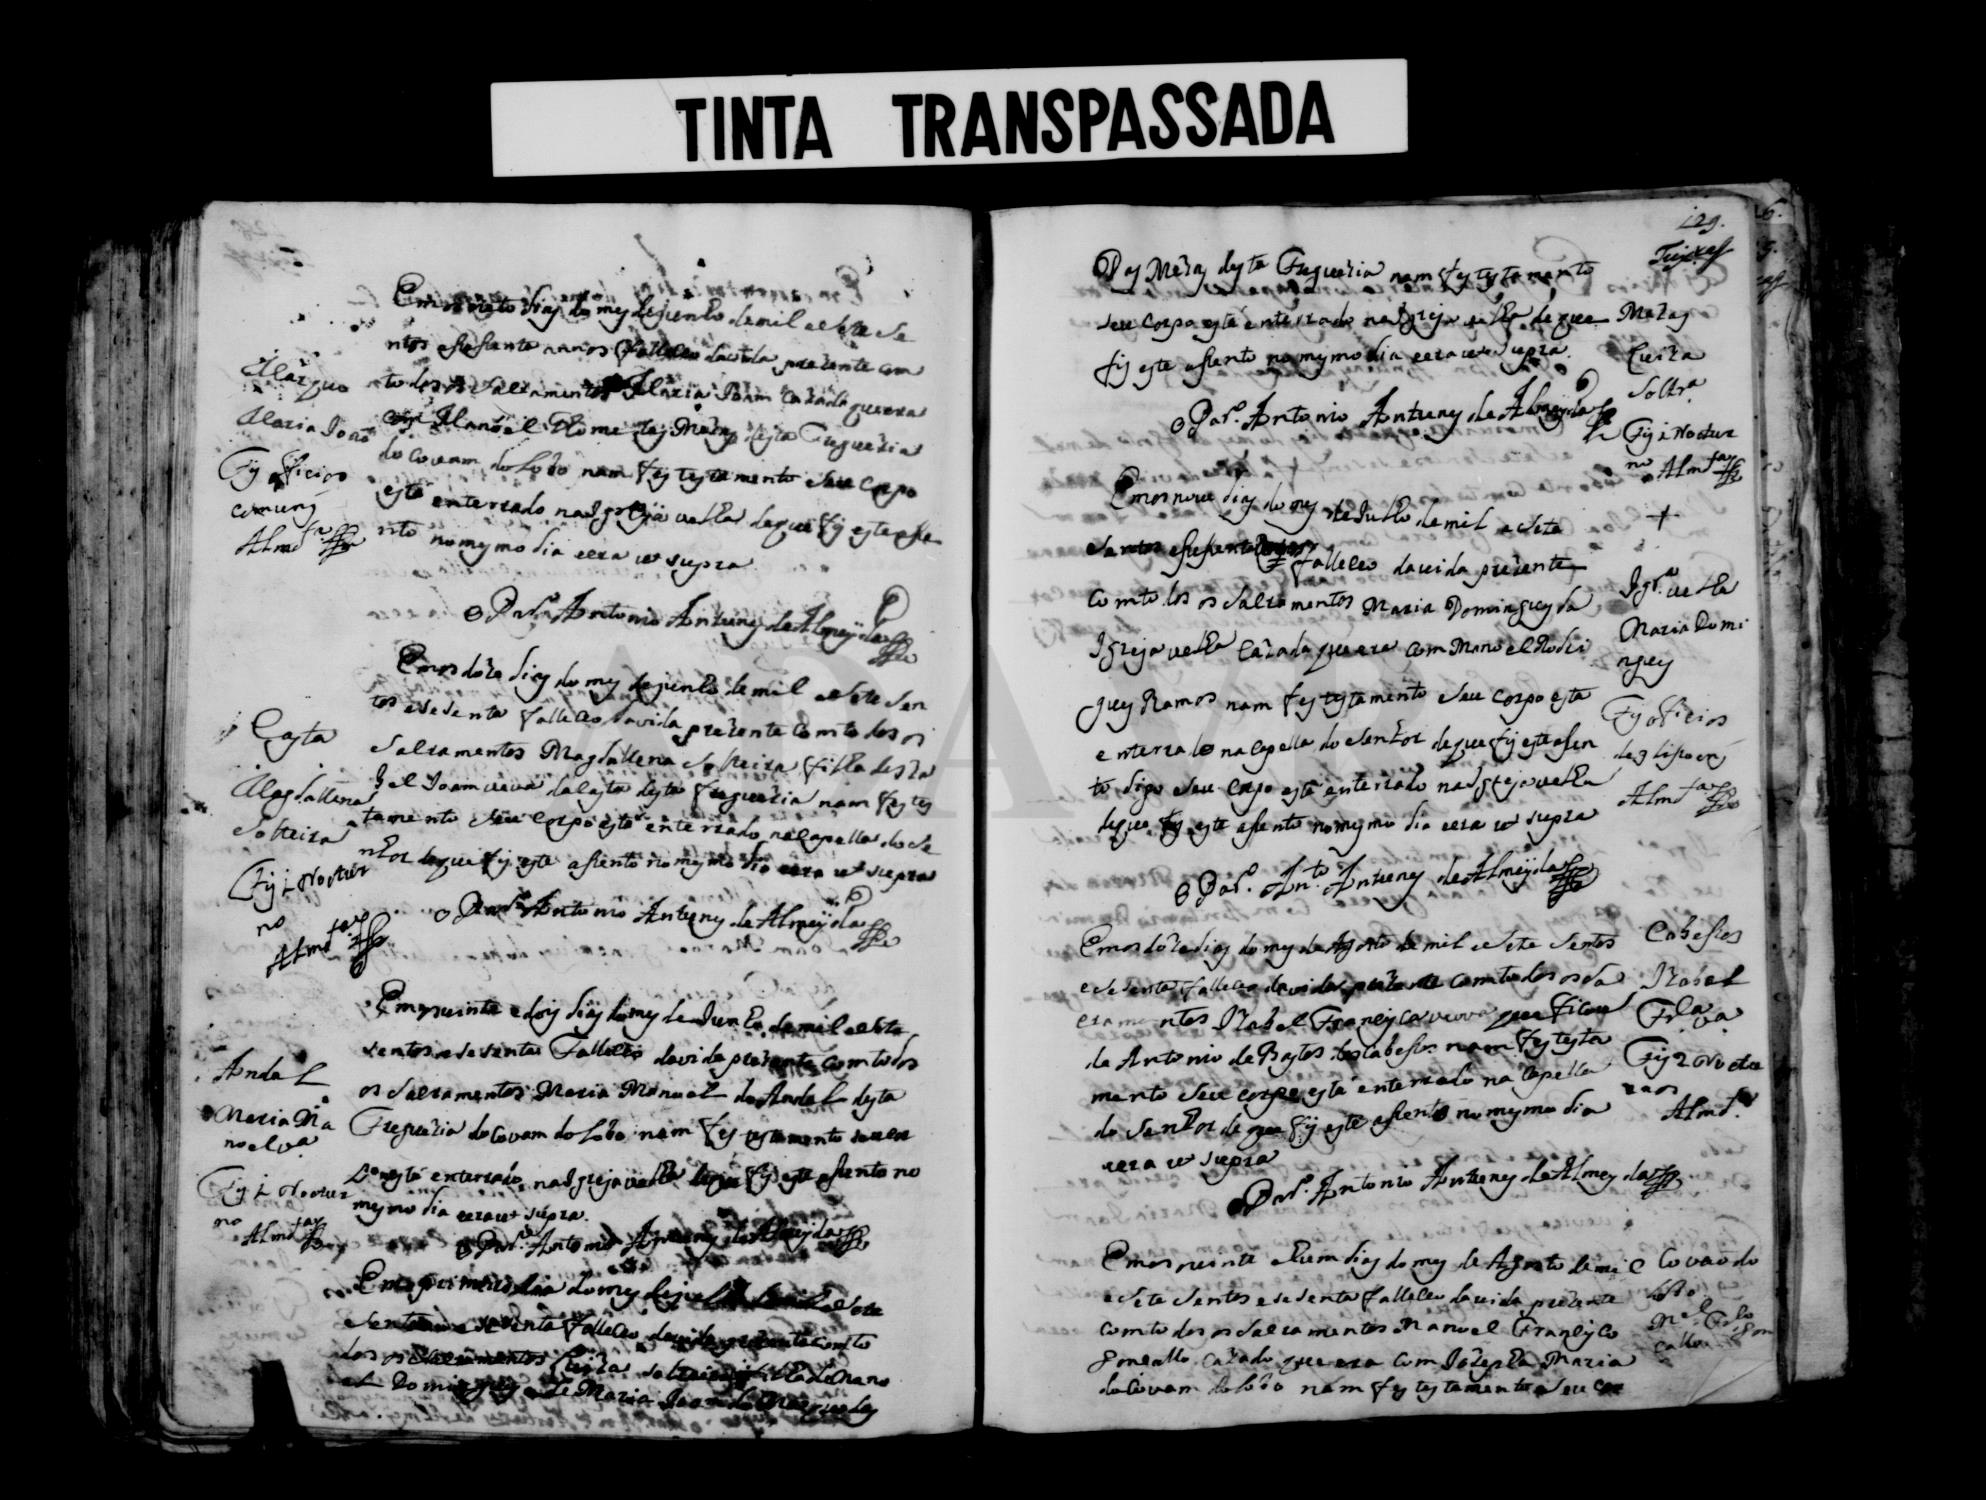 TINTA TRANSPASSADA
Emos oito dias do mes de junho de mil e sete se
ntos e sessenta annos falleceo da vida prezente com
todos os Sacramentos Maria Joam cazada que era
com Manoel Thome das Mezas desta Freguezia
do Covam do Lobo nam fes testamento seu corpo
está enterrado na Igreja velha de que fis este asse
nto no mesmo dia e era ut supra
O Par.º Antonio Antunes de Almeyda
Maria Joaõ
Fis officios
comuns
Almd.ª
Emos doze dias do mes de junho de mil e sete sen
tos e sesenta falleceo da vida prezente com todos os
Sacramentos Magdallena Solteira filha de
Joam da Costa desta freguezia nam fes tes
tamento seu corpo está enterrado na capella do Se
nhor de que fis este assento no mesmo dia e era ut supra
O Par.º Antonio Antunes de Almeyda
Costa
Magdallena
Solteira
Fis 1 Noctur
no
Almd.ª
Emos vinte e dois dias do mes de Junho de mil e sete
sentos e sesenta Falleceo da vida prezente com todos
os Sacramentos Maria Manoel do Andal desta
Freguezia do Covam do Lobo nam fes testamento seu cor
po está enterrado na Igreja velha de que fis este assento no
mesmo dia e era ut supra.
O Par.º Antonio Antunes de Almeyda
Andal
Maria Ma
noel v.ª
Fis 1 Noctur
no
Almd.ª
Emos primeiro dia do mes de julho de mil e sete
sentos e sesenta falleceo da vida prezente com to
dos os Sacramentos Luiza solteira filha de Mano
el Domingues e de Maria Joam do
129.
Das Mezas desta Freguezia nam fes testamento
seu corpo está enterrado na Igreja velha de que
fis este assento no mesmo dia e era ut supra.
O Par.º Antonio Antunes de Almeyda
Mezas
Luiza
Soltr.ª
Fis 1 Noctur
no Almd.ª
Emos nove dias do mes de Julho de mil e sete
sentos e sessenta falleceo da vida prezente
com todos os Sacramentos Maria Domingues da
Igreja velha Cazada que era com Manoel Rodri
gues Ramos nam fes testamento seu corpo está
enterrado na Capella do Senhor de que fis este asen
to digo seu corpo está enterrado na Igreja velha
de que fis este assento no mesmo dia e era ut supra
O Par.º An.to Antunes de Almeyda
Igr.ª velha
Maria Domi
ngues
Fis officios
Almd.ª
Emos doze dias do mes de Agosto de mil e sete sentos
e sesenta falleceo da vida prezente com todos os Sa
cramentos Izabel Francisca viuva que ficou
de Antonio de Bastos dos Cabessos nam fes testa
mento seu corpo está enterrado na Capella
do Senhor de que fis este assento no mesmo dia
e era ut supra
O Par.º Antonio Antunes de Almeyda
Cabessos
Izabel
Fr.ca v.ª
Fis 2 Noctu
rnos
Almd.ª
Emos vinte e hum dias do mes de Agosto de mil
e sete sentos e sesenta falleceo da vida prezente
com todos os Sacramentos Manoel Francisco
Gonsallo cazado que era com Jozepha Maria
do Covam do Lobo nam fes testamento seu cor
Covaõ do
Lobo
M.el Fr.co Gon
callo